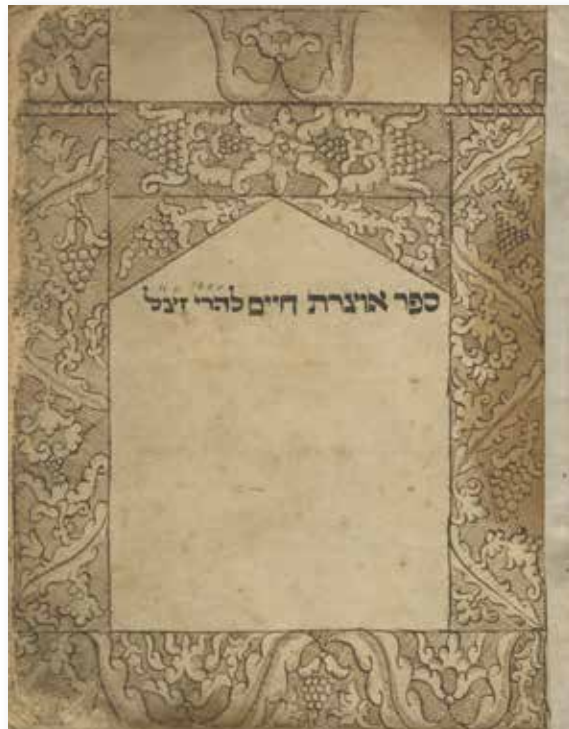 ספר אוצרת חיים להרי זצל